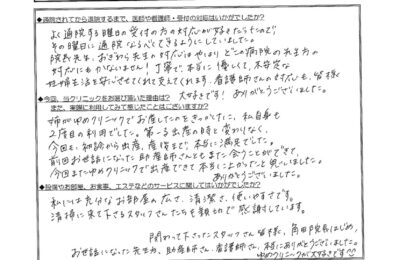 ●通院されてから退院するまで、医師や看護師・受付の対応はいかがでしたか?
よく通院する曜日の受付の方の対応が好きだったので
その曜日に通院なるべくできるようにしていました。
院長先生、おぎわら先生の対応はやはりどこの病院の先生方の
対応にもかないません! 丁寧で、本当に優しくて、不安定な
妊婦生活を安心させてくれて支えてくれます。看護師さんの対応も、皆様
大好きです! ありがとうございました。
●今回、当クリニックをお選び頂いた理由は?
また、実際に利用してみて感じたことはございますか?
姉がゆめクリニックでお産したのをきっかけに、私自身も
2度目の利用でした。第一子出産の時と変わりなく、
今回も、初診から出産、産後まで本当に満足でした。
前回お世話になった助産師さんともまた会うことができて、
今回またゆめクリニックで出産できて本当によかったと思いました。
ありがとうございました。
●設備やお部屋、お食事、エステなどのサービスに関してはいかがでしたか?
私には充分なお部屋の広さ、清潔さ、使いやすさです。
清掃に来て下さるスタッフさんたちも親切で感謝しています。
関わって下さったスタッフさん皆様、角田院長はじめ、
お世話になった先生方、助産師さん、看護師さん、本当にありがとうございました。
ゆめクリニックが大好きです